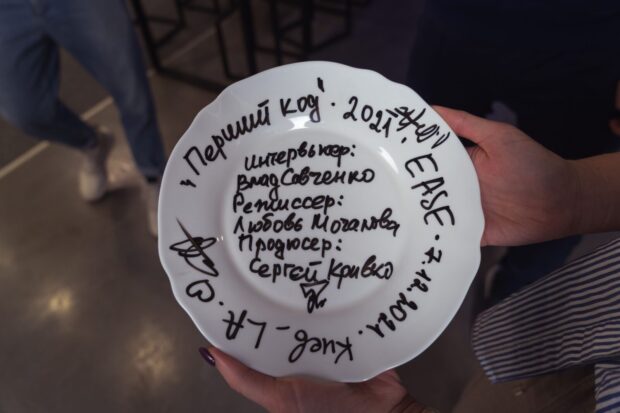 "Перший код" · 2021 · EASE · 7.12.2021 · Киев - LA ·
интервьюер:
Влад Савченко
Режиссер:
Любовь Мочалова
Продюсер:
Сергей Кривко